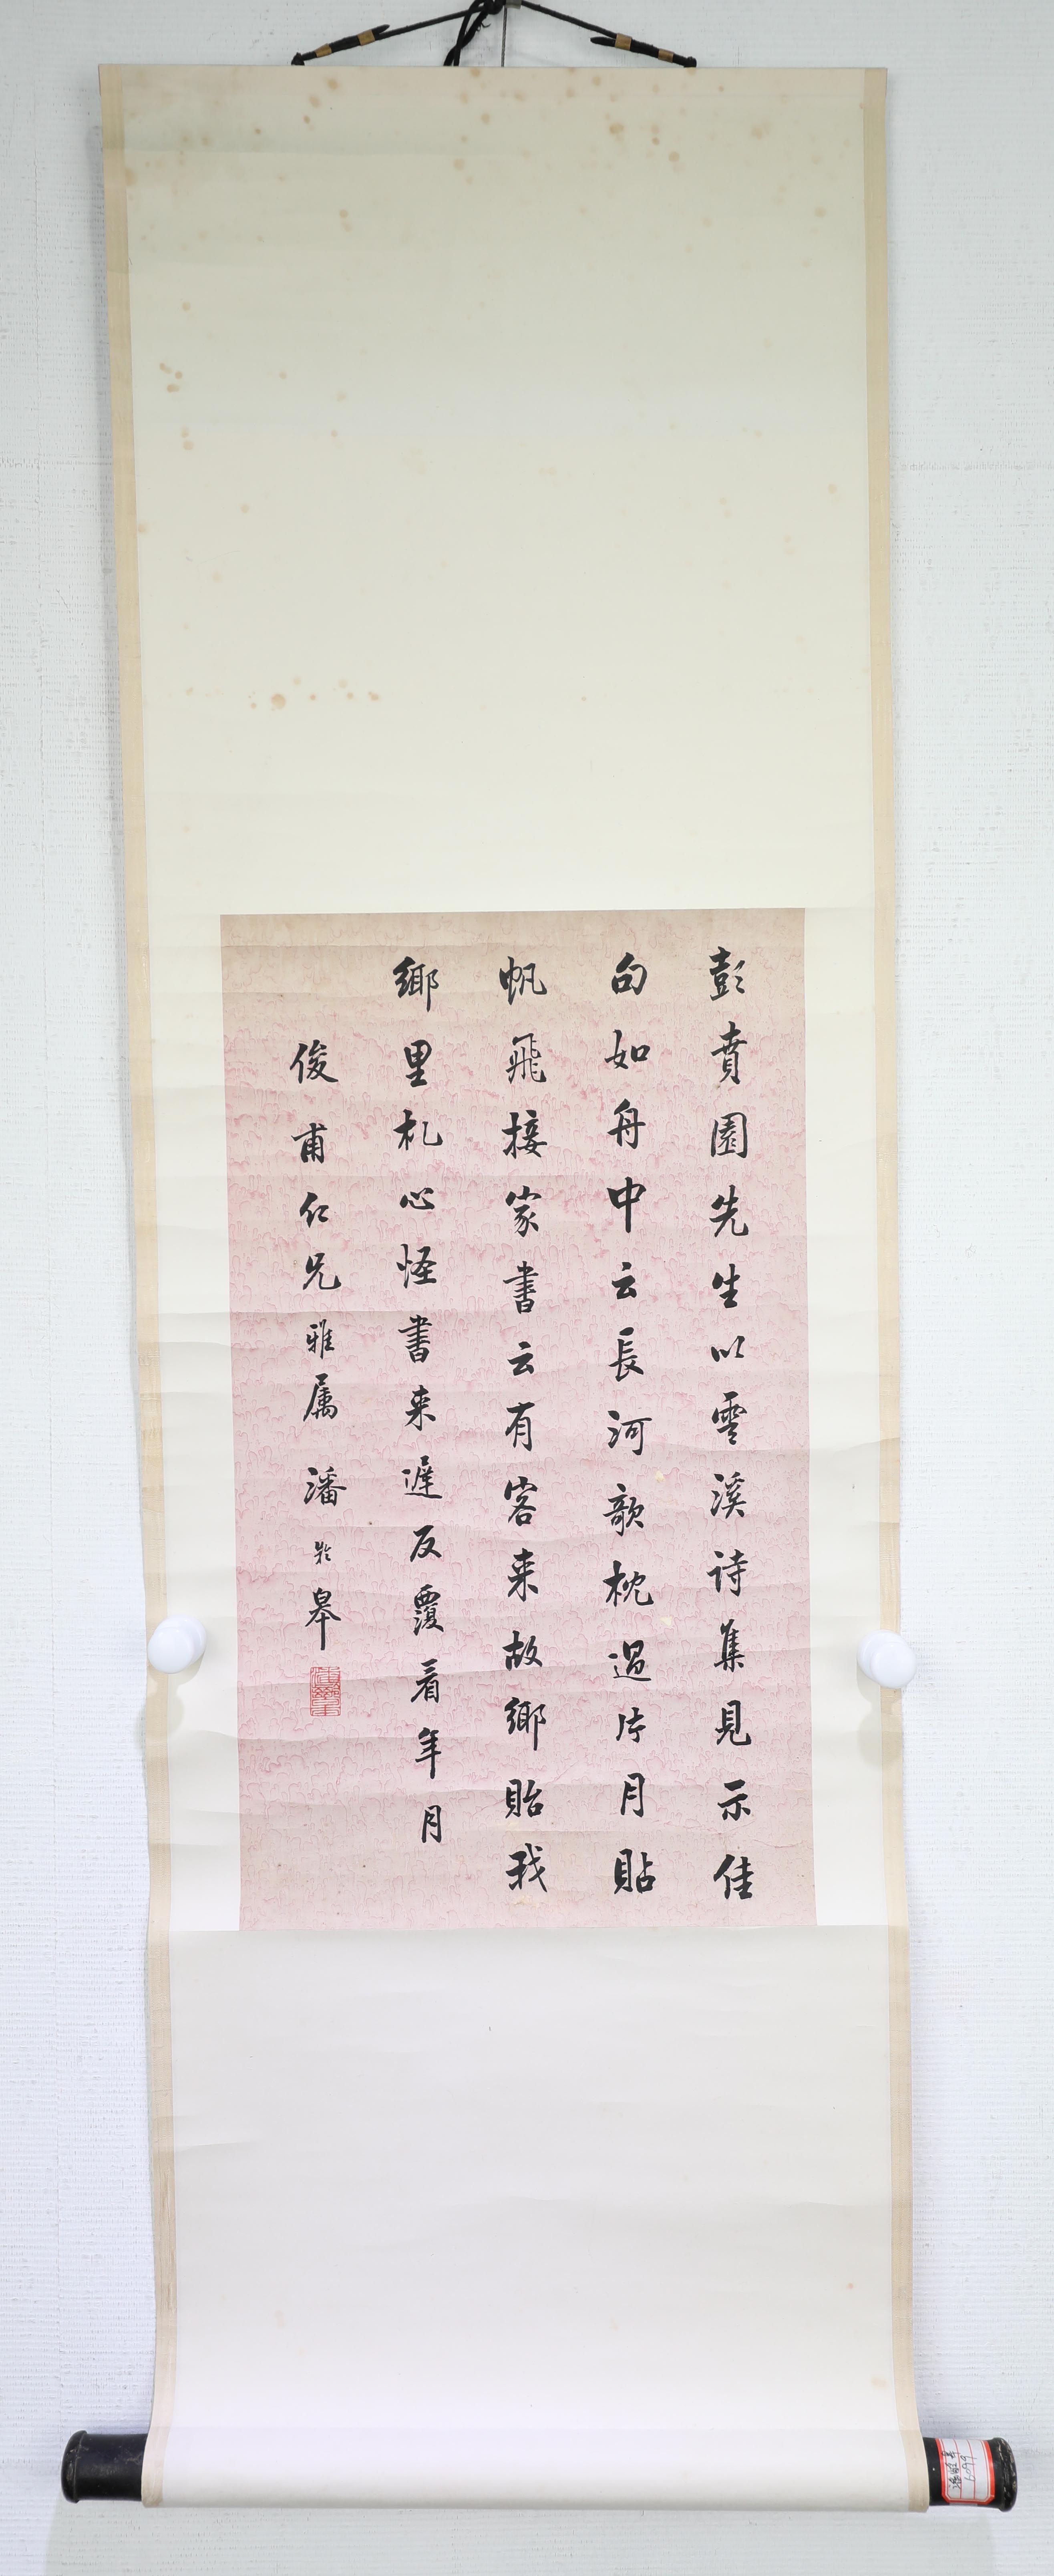 彭賁園先生以雲溪诗集見示佳
句如舟中云長河歌枕過片月貼
帆飛接家書云有客来故鄉貽我
鄉里札心怪書来遲反覆看年月
俊甫仁兄雅属 潘龄皋
6099